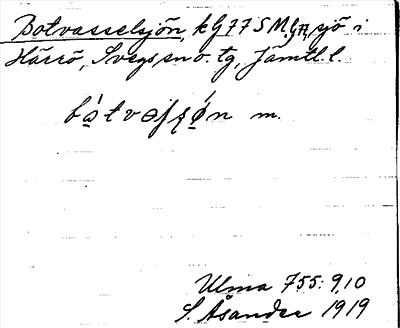 Botvasselsjön, k G 77 S M.GA, sjö i
Härrö, Svegs sn o. tg, Jämtl. l.
m.
Ulma 755: 9,10
S. Åsander 1919